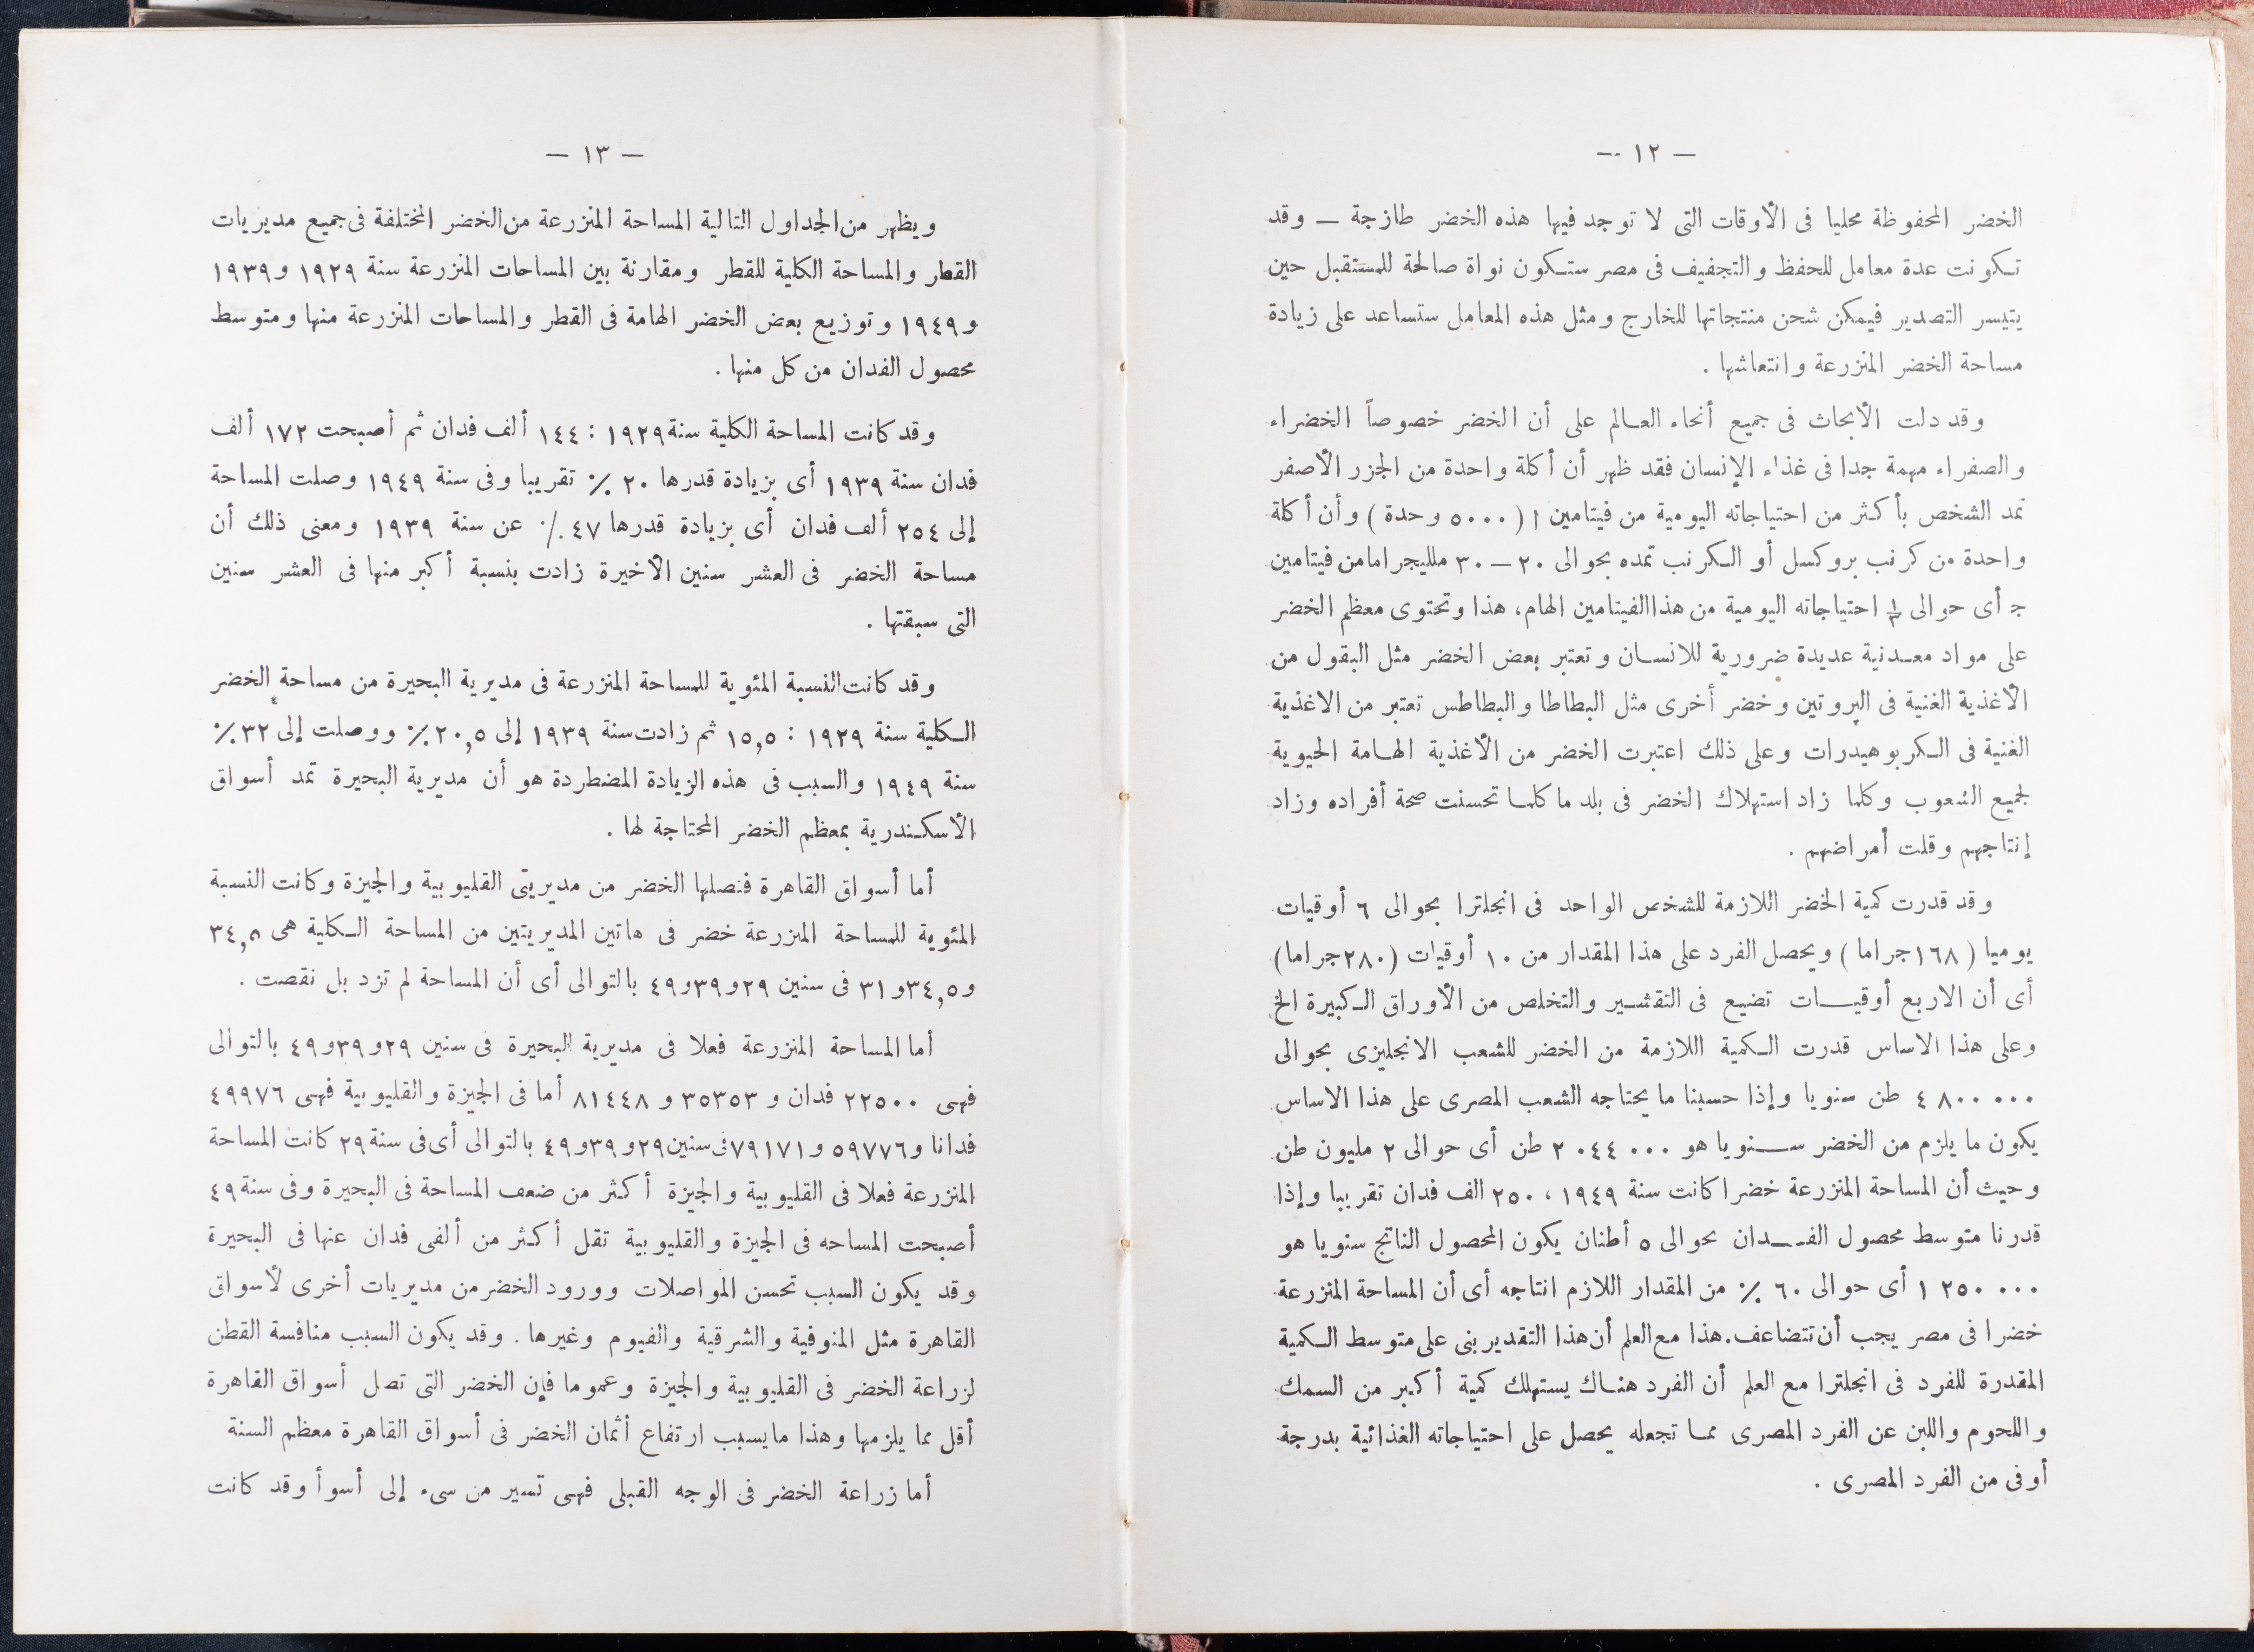 — ١٢ —
الخضر المحفوظة محليا فى الأوقات التى لا توجد فيها هذه الخضر طازجة — وقد
تكونت عدة معامل للحفظ والتجفيف فى مصر ستكون نواة صالحة للمستقبل حين
يتيسر التصدير فيمكن شحن منتجاتها للخارج ومثل هذه المعامل ستساعد على زيادة
مساحة الخضر المنزرعة وانتعاشها .
وقد دلت الأبحاث فى جميع أنحاء العالم على أن الخضر خصوصاً الخضراء
والصفراء مهمة جدا فى غذاء الإنسان فقد ظهر أن أكلة واحدة من الجزر الأصفر
تمد الشخص بأكثر من احتياجاته اليومية من فيتامين ا ( ٥٠٠٠ وحدة ) وأن أكلة
واحدة من كرنب بروكسل أو الكرنب تمده بحوالى ٢٠ — ٣٠ ملليجراما من فيتامين
ج أى حوالى ١/٣ احتياجاته اليومية من هذا الفيتامين الهام، هذا وتحتوى معظم الخضر
على مواد معدنية عديدة ضرورية للانسان وتعتبر بعض الخضر مثل البقول من
الأغذية الغنية فى البروتين وخضر أخرى مثل البطاطا والبطاطس تعتبر من الاغذية
الغنية فى الكربوهيدرات وعلى ذلك اعتبرت الخضر من الأغذية الهامة الحيوية
لجميع الشعوب وكلما زاد استهلاك الخضر فى بلد ما كلما تحسنت صحة أفراده وزاد
إنتاجهم وقلت أمراضهم .
وقد قدرت كمية الخضر اللازمة للشخص الواحد فى انجلترا بحوالى ٦ أوقيات
يوميا ( ١٦٨ جراما ) ويحصل الفرد على هذا المقدار من ١٠ أوقيات (٢٨٠ جراما)
أى أن الاربع أوقيات تضيع فى التقشير والتخلص من الأوراق الكبيرة الخ
وعلى هذا الاساس قدرت الكمية اللازمة من الخضر للشعب الانجليزى بحوالى
٤ ٨٠٠ ٠٠٠ طن سنويا وإذا حسبنا ما يحتاجه الشعب المصرى على هذا الاساس
يكون ما يلزم من الخضر سنويا هو ٢ ٠٤٤ ٠٠٠ طن أى حوالى ٢ مليون طن
وحيث أن المساحة المنزرعة خضرا كانت سنة ١٩٤٩ ، ٢٥٠ الف فدان تقريبا وإذا
قدرنا متوسط محصول الفدان بحوالى ٥ أطنان يكون المحصول الناتج سنويا هو
١ ٢٥٠ ٠٠٠ أى حوالى ٦٠ ٪ من المقدار اللازم انتاجه أى أن المساحة المنزرعة
خضرا فى مصر يجب أن تتضاعف. هذا مع العلم أن هذا التقدير بنى على متوسط الكمية
المقدرة للفرد فى انجلترا مع العلم أن الفرد هناك يستهلك كمية أكبر من السمك
واللحوم واللبن عن الفرد المصرى مما تجعله يحصل على احتياجاته الغذائية بدرجة
أوفى من الفرد المصرى .
— ١٣ —
ويظهر من الجداول التالية المساحة المنزرعة من الخضر المختلفة فى جميع مديريات
القطر والمساحة الكلية للقطر ومقارنة بين المساحات المنزرعة سنة ١٩٢٩ و١٩٣٩
و١٩٤٩ وتوزيع بعض الخضر الهامة فى القطر والمساحات المنزرعة منها ومتوسط
محصول الفدان من كل منها .
وقد كانت المساحة الكلية سنة ١٩٢٩ : ١٤٤ ألف فدان ثم أصبحت ١٧٢ ألف
فدان سنة ١٩٣٩ أى بزيادة قدرها ٢٠ ٪ تقريبا وفى سنة ١٩٤٩ وصلت المساحة
إلى ٢٥٤ ألف فدان أى بزيادة قدرها ٤٧ ٪ عن سنة ١٩٣٩ ومعنى ذلك أن
مساحة الخضر فى العشر سنين الأخيرة زادت بنسبة أكبر منها فى العشر سنين
التى سبقتها .
وقد كانت النسبة المئوية للمساحة المنزرعة فى مديرية البحيرة من مساحة الخضر
الكلية سنة ١٩٢٩ : ١٥,٥ ثم زادت سنة ١٩٣٩ إلى ٢٠,٥ ٪ ووصلت إلى ٣٢ ٪
سنة ١٩٤٩ والسبب فى هذه الزيادة المضطردة هو أن مديرية البحيرة تمد أسواق
الأسكندرية بمعظم الخضر المحتاجة لها .
أما أسواق القاهرة فتصلها الخضر من مديريتى القليوبية والجيزة وكانت النسبة
المئوية للمساحة المنزرعة خضر فى هاتين المديريتين من المساحة الكلية هى ٣٤,٥
و٣٤,٥ و٣١ فى سنين ٢٩ و٣٩ و٤٩ بالتوالى أى أن المساحة لم تزد بل نقصت .
أما المساحة المنزرعة فعلا فى مديرية البحيرة فى سنين ٢٩ و٣٩ و٤٩ بالتوالى
فهى ٢٢٥٠٠ فدان و ٣٥٣٥٣ و ٨١٤٤٨ أما فى الجيزة والقليوبية فهى ٤٩٩٧٦
فدانا و٥٩٧٧٦ و٧٩١٧١ فى سنين ٢٩ و ٣٩ و٤٩ بالتوالى أى فى سنة ٢٩ كانت المساحة
المنزرعة فعلا فى القليوبية والجيزة أكثر من ضعف المساحة فى البحيرة وفى سنة ٤٩
أصبحت المساحه فى الجيزة والقليوبية تقل أكثر من ألفى فدان عنها فى البحيرة
وقد يكون السبب تحسن المواصلات وورود الخضر من مديريات أخرى لأسواق
القاهرة مثل المنوفية والشرقية والفيوم وغيرها . وقد يكون السبب منافسة القطن
لزراعة الخضر فى القليوبية والجيزة وعموما فإن الخضر التى تصل أسواق القاهرة
أقل مما يلزمها وهذا ما يسبب ارتفاع أثمان الخضر فى أسواق القاهرة معظم السنة
أما زراعة الخضر فى الوجه القبلى فهى تسير من سىء إلى أسوأ وقد كانت